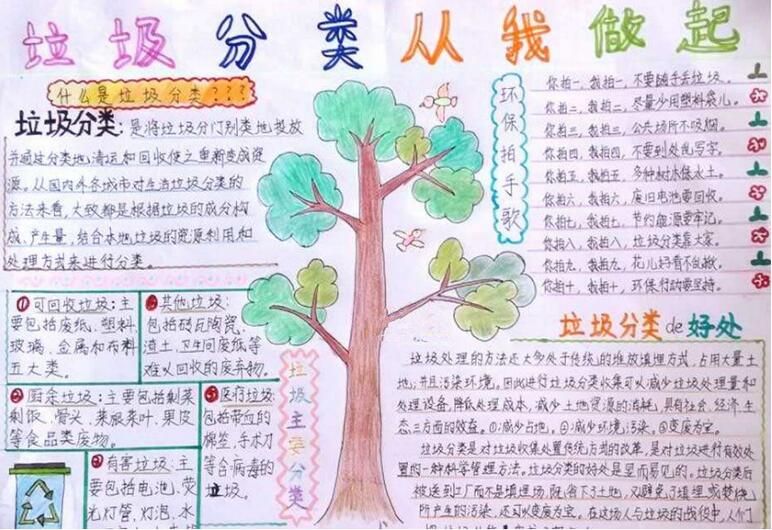 垃圾分类从我做起
什么是垃圾分类???
垃圾分类:是将垃圾分门别类地投放
并通过分类地清运和回收使之重新变成资
源。从国内外各城市对生活垃圾分类的
方法来看,大致都是根据垃圾的成分构
成、产生量,结合本地垃圾的资源利用和
处理方式来进行分类。
①可回收垃圾:主
要包括废纸、塑料、
玻璃、金属和布料
五大类。
②厨余垃圾:主要包括剩菜
剩饭、骨头、菜根菜叶、果皮
等食品类废物。
③其他垃圾:
包括砖瓦陶瓷、
渣土、卫生间废纸等
难以回收的废弃物。
有害垃圾:主
要包括电池、荧
光灯管、灯泡、水
医疗垃圾:
包括带血的
棉签、手术刀
等含病毒的
垃圾。
垃圾主要分类
环保拍手歌
你拍一,我拍一,不要随手丢垃圾。
你拍二,我拍二,尽量少用塑料袋儿。
你拍三,我拍三,公共场所不吸烟。
你拍四,我拍四,不要到处乱写字。
你拍五,我拍五,多种树木保水土。
你拍六,我拍六,废旧电池要回收。
你拍七,我拍七,节约能源要牢记。
你拍八,我拍八,垃圾分类靠大家。
你拍九,我拍九,花儿好看不乱揪。
你拍十,我拍十,环保行动要坚持。
垃圾分类de好处
垃圾处理的方法还大多处于传统的堆放填埋方式,占用大量土
地;并且污染环境。因此进行垃圾分类收集可以减少垃圾处理量和
处理设备,降低处理成本,减少土地资源的消耗,具有社会、经济、生
态三方面的效益。①减少占地。②减少环境污染。③变废为宝。
垃圾分类是对垃圾收集处置传统方式的改革,是对垃圾进行有效处
置的一种科学管理方法。垃圾分类的好处是显而易见的。垃圾分类后
被送到工厂而不是填埋场,既省下了土地,又避免了填埋或焚烧
所产生的污染,还可以变废为宝。在这场人与垃圾的战役中,人们